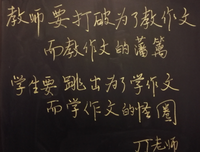 教师要打破为了教作文
而教作文的藩篱
学生要跳出为了学作文
而学作文的怪圈
丁老师